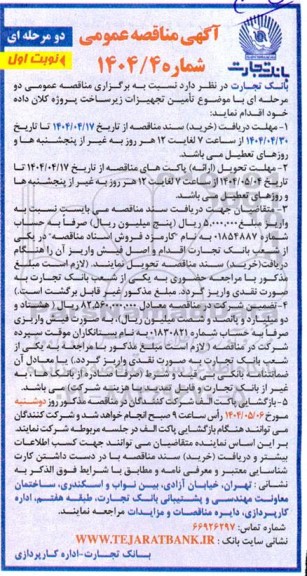 آگهی مناقصه عمومی
شماره ۱۴۰۴/۴
دو مرحله ای
نوبت اول
بانک تجارت
بانک تجارت در نظر دارد نسبت به برگزاری مناقصه عمومی دو
مرحله ای با موضوع تأمین تجهیزات زیرساخت پروژه کلان داده
خود اقدام نماید:
۱- مهلت دریافت (خرید) سند مناقصه از تاریخ ۱۴۰۴/۰۴/۱۷ تا تاریخ
۱۴۰۴/۰۴/۳۰ از ساعت ۷ لغایت ۱۲ هر روز به غیر از پنجشنبه ها و
روزهای تعطیل می باشد.
۲- مهلت تحویل (ارائه) پاکت های مناقصه از تاریخ ۱۴۰۴/۰۴/۱۷ تا
تاریخ ۱۴۰۴/۰۵/۰۴ از ساعت ۷ لغایت ۱۲ هر روز به غیر از پنجشنبه ها
و روزهای تعطیل می باشد.
۳- متقاضیان جهت دریافت سند مناقصه می بایست نسبت به
واریز مبلغ ۵,۰۰۰,۰۰۰ ریال (پنج میلیون ریال) صرفاً به حساب
شماره ۰۱۸۵۴۸۸۷ به نام "کارمزد فروش اسناد مناقصه" در یکی
از شعب بانک تجارت اقدام و اصل فیش واریز آن را هنگام
دریافت (خرید) سند مناقصه تحویل نمایند. (لازم است مبلغ
مذکور با مراجعه حضوری به یکی از شعب بانک تجارت به
صورت نقدی واریز گردد. مبلغ مذکور غیر قابل برگشت است.)
۴- تضمین شرکت در مناقصه معادل ۸۲,۵۶۰,۰۰۰,۰۰۰ ریال (هشتاد و
دو میلیارد و پانصد و شصت میلیون ریال) به صورت فیش واریزی
صرفاً به حساب شماره ۰۱۸۳۰۸۲۱ به نام بستانکاران موقت سپرده
شرکت در مناقصه (لازم است مبلغ مذکور با مراجعه به یکی از
شعب بانک تجارت به صورت نقدی واریز گردد.) یا معادل آن
ضمانتنامه بانکی بی قید و شرط (صرفاً صادره از بانک هایی به
غیر از بانک تجارت و قابل تمدید با هزینه شرکت) می باشد.
۵- بازگشایی پاکت الف شرکت کنندگان در مناقصه مذکور روز دوشنبه
مورخ ۱۴۰۴/۰۵/۰۶ رأس ساعت ۹ صبح انجام خواهد شد و شرکت کنندگان
می توانند هنگام بازگشایی پاکت الف در جلسه مربوطه شرکت نمایند
بر این اساس نماینده متقاضیان می توانند جهت کسب اطلاعات
بیشتر و دریافت (خرید) سند مناقصه با در دست داشتن کارت
شناسایی معتبر و معرفی نامه و مطابق با شرایط فوق الذکر به
نشانی: تهران، خیابان آزادی، بین نواب و اسکندری، ساختمان
معاونت مهندسی و پشتیبانی بانک تجارت، طبقه هفتم، اداره
کارپردازی، دایره مناقصات و مزایدات مراجعه نمایند.
شماره تماس: ۶۶۹۲۶۲۹۷
نشانی سایت بانک: WWW.TEJARATBANK.IR
بانک تجارت-اداره کارپردازی